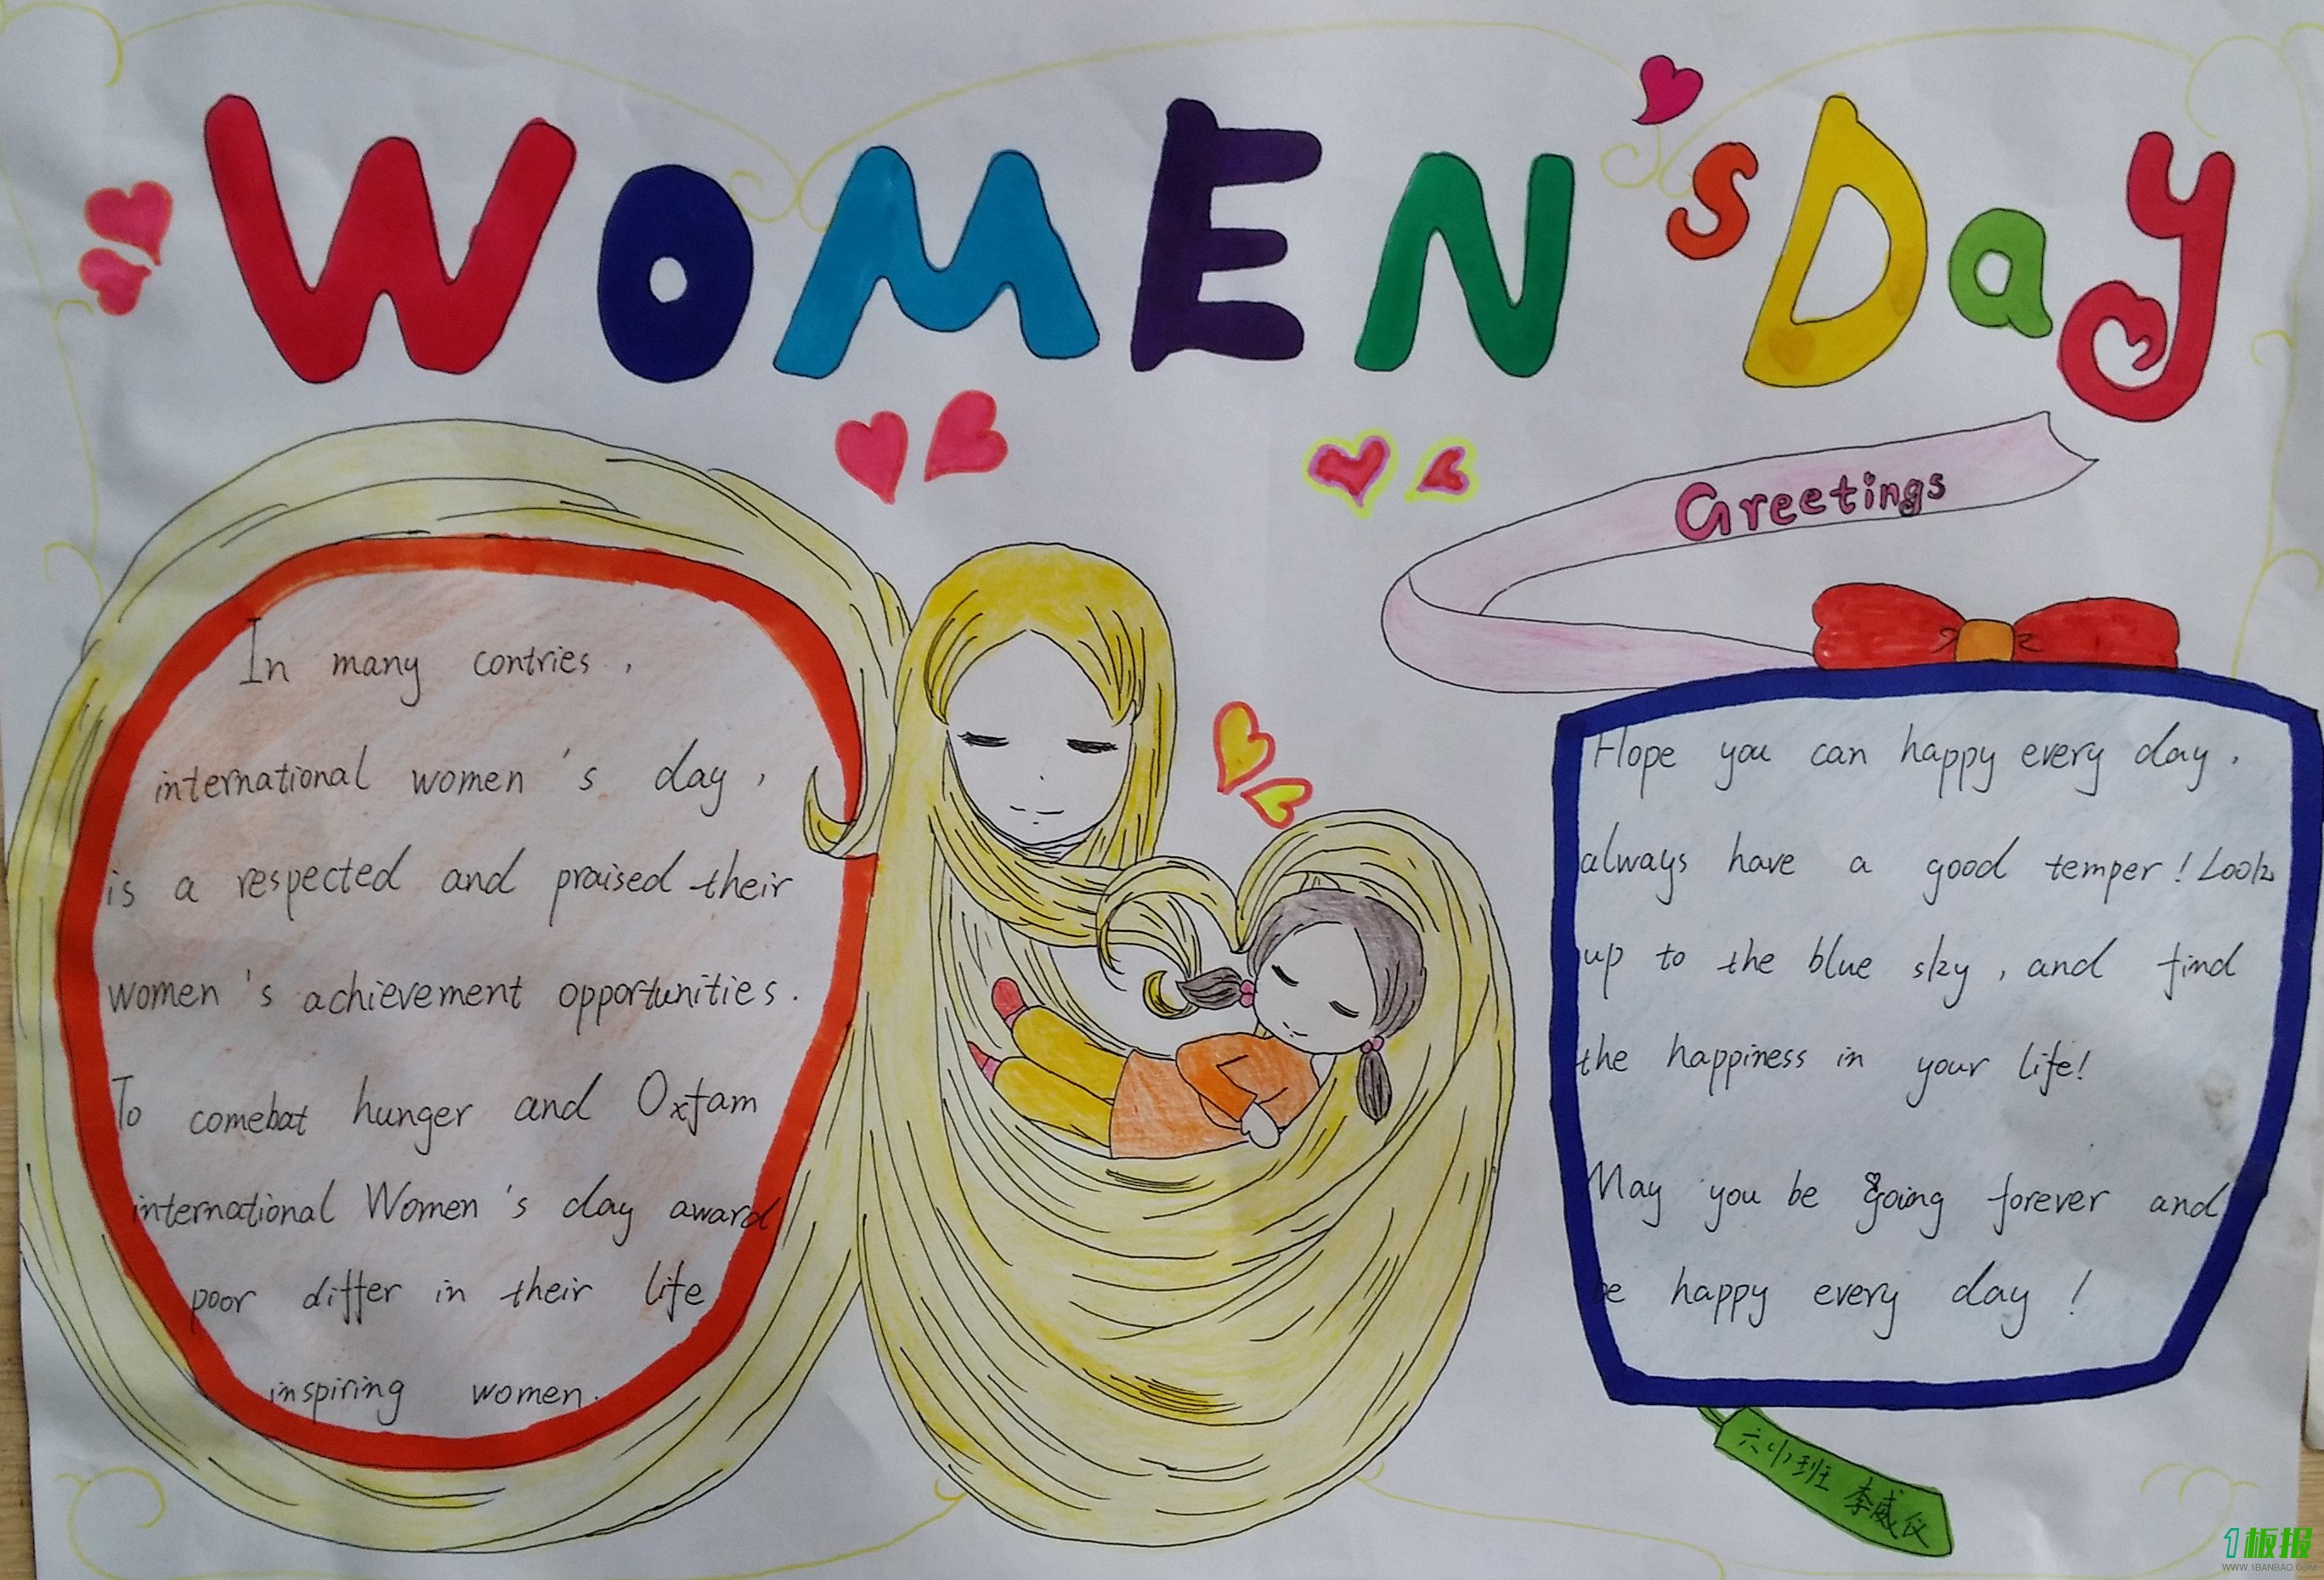 WOMEN'S Day
Greetings
In many contries,
international women's day,
is a respected and praised their
women's achievement opportunities.
To comebat hunger and Oxfam
international Women's day award
poor differ in their life
inspiring women.
Hope you can happy every day,
always have a good temper! Look
up to the blue sky, and find
the happiness in your life!
May you be going forever and
be happy every day!
班 李威仪
1板报
WWW.1BANBAO.COM